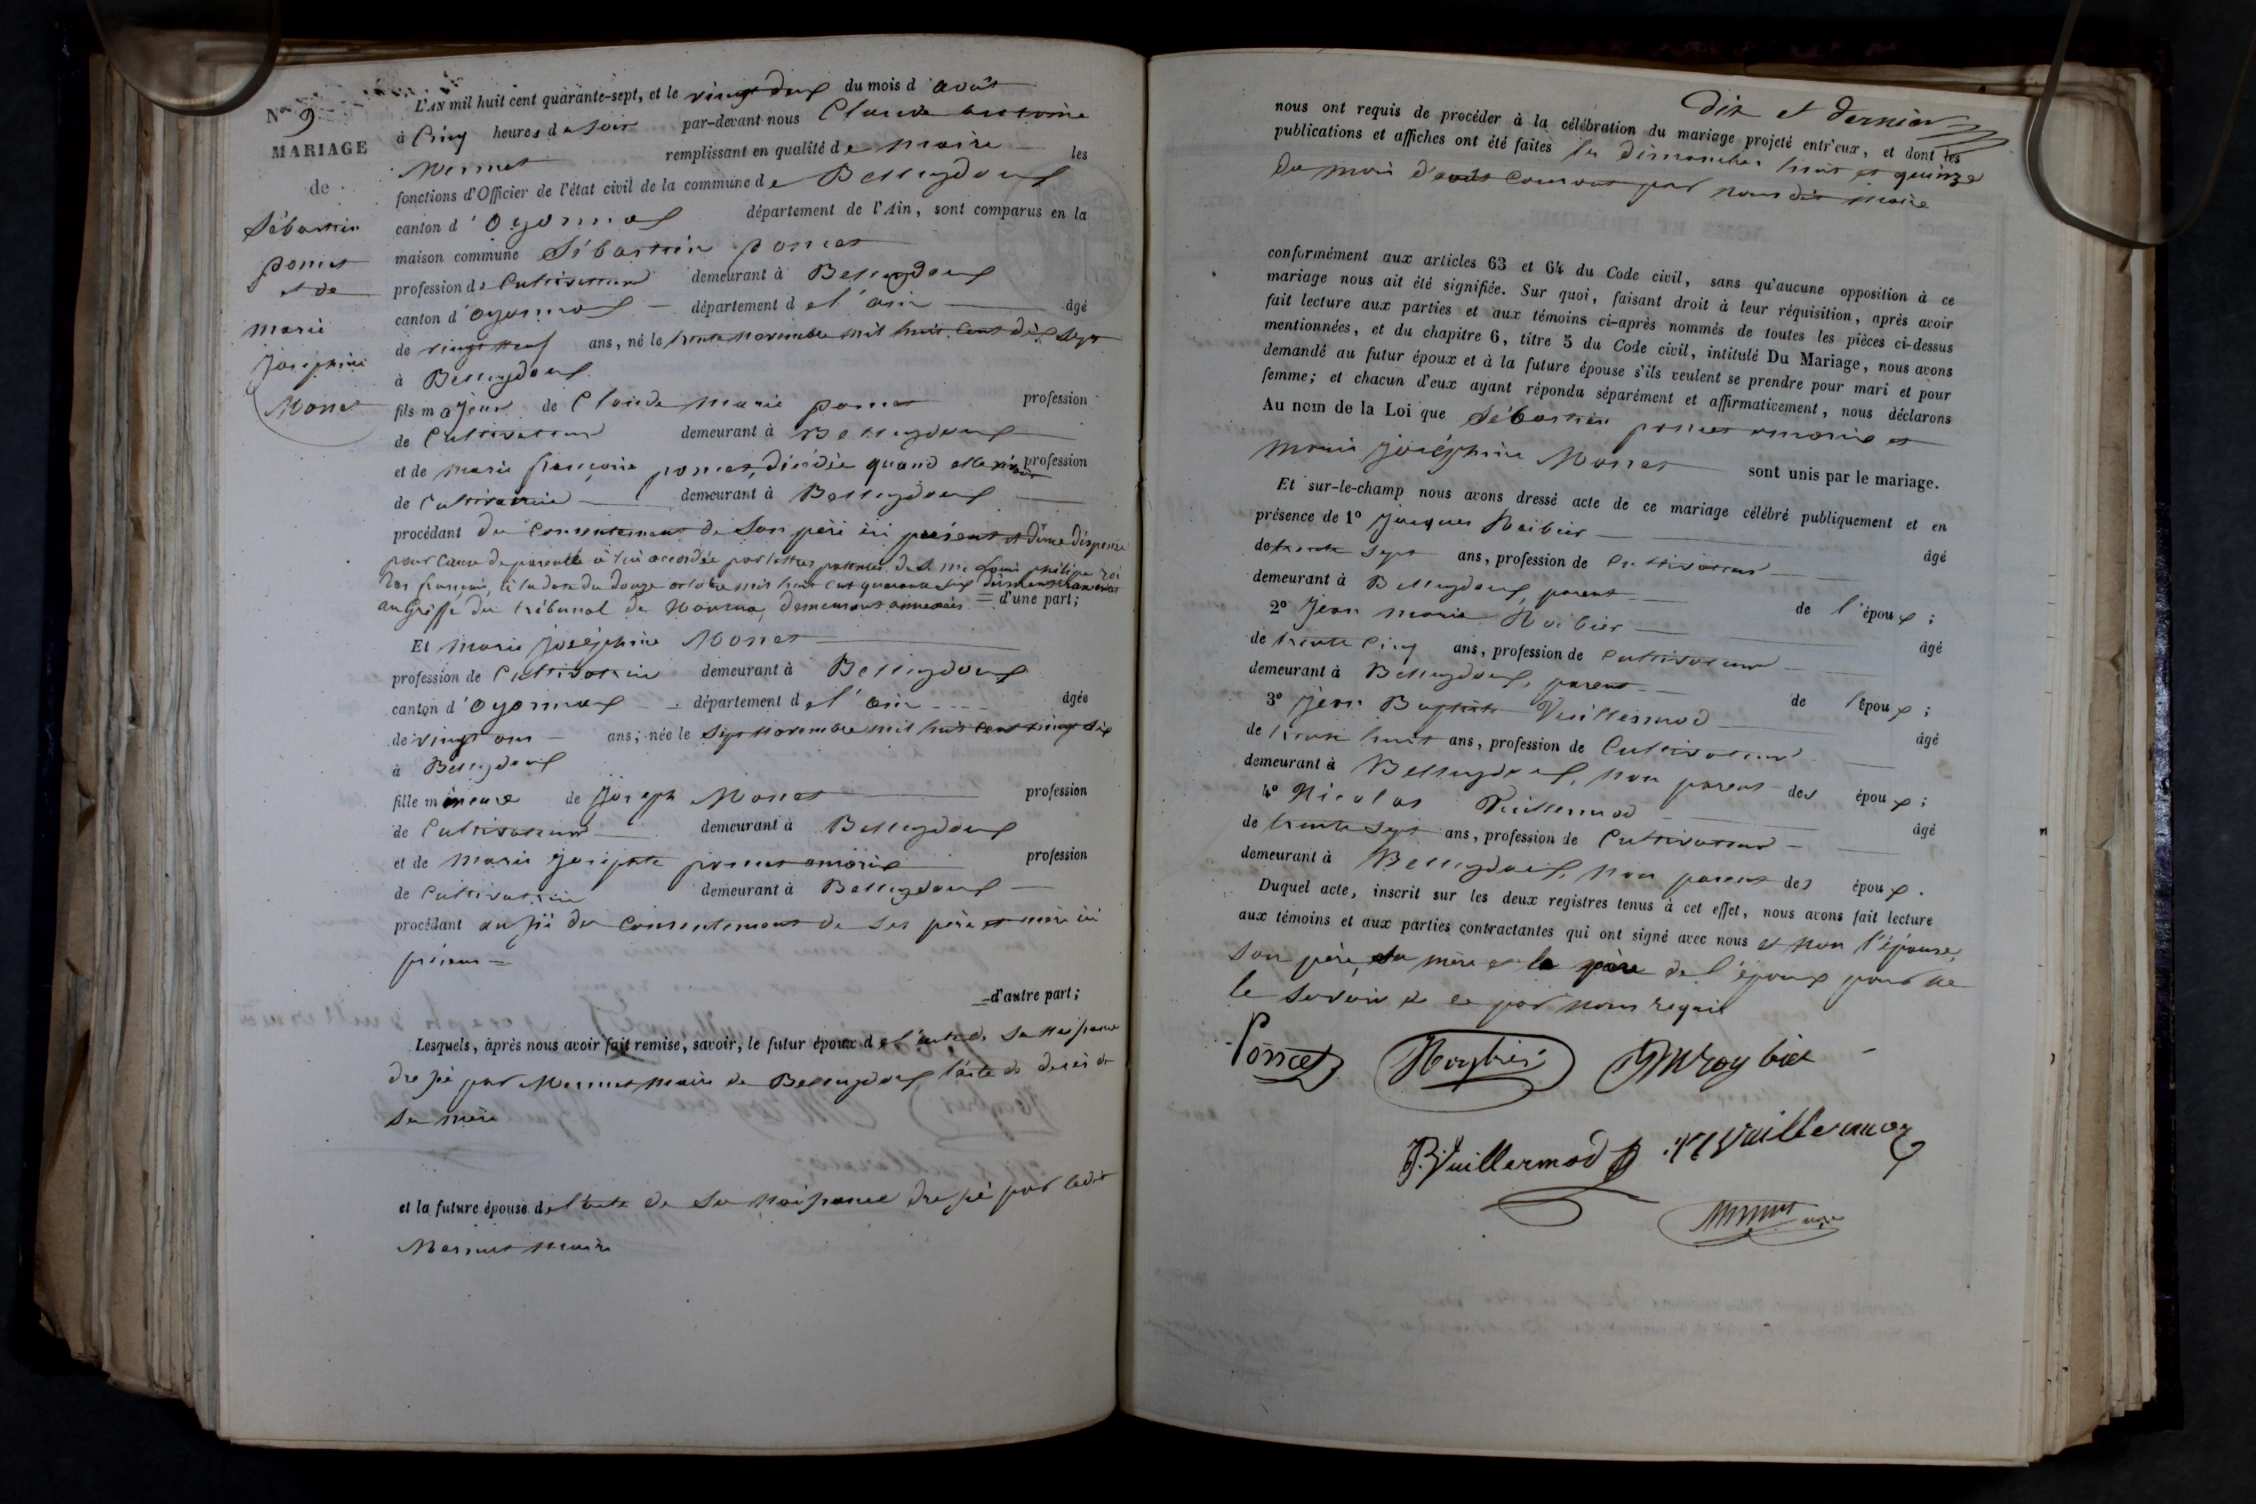 N° 9
MARIAGE
de
Sébastien
poncet
et de
marie
Joséphine
Monet
L'AN mil huit cent quarante-sept, et le vingt deux du mois d'août
à Cinq heures du soir par-devant nous Claude antoine
Mermet remplissant en qualité de maire les
fonctions d'Officier de l'état civil de la commune de Belleydoux
canton d'oyonnax département de l'Ain, sont comparus en la
maison commune Sébastien poncet
profession de Cultivateur demeurant à Belleydoux
canton d'oyonnax département de l'ain âgé
de vingt neuf ans, né le trente novembre mil huit cent dix sept
à Belleydoux
fils majeur de Claude marie poncet profession
de Cultivateur demeurant à Belleydoux
et de marie françoise poncet, décédée quand elle vivait profession
de Cultivatrice demeurant à Belleydoux
procédant du consentement de son père ici présent et d'une dispense
pour cause de parenté à lui accordée par lettres patentes de S. M. Louis philipe roi
des français, à la date du douze octobre mil huit cent quarante six
au Greffe du tribunal de Nantua, demeurant annexées d'une part;
Et marie Joséphine Monet
profession de Cultivatrice demeurant à Belleydoux
canton d'oyonnax département de l'ain âgée
de vingt ans ans, née le sept novembre mil huit cent vingt six
à Belleydoux
fille mineure de Joseph Monet profession
de Cultivateur demeurant à Belleydoux
et de marie Josephte poncet profession
de Cultivatrice demeurant à Belleydoux
procédant du consentement de ses père et mère ici
présens
d'autre part;
Lesquels, après nous avoir fait remise, savoir, le futur époux de l'acte de sa naissance
dressé par Mermet maire de Belleydoux l'acte de décès de
sa mère
et la future épouse de l'acte de sa naissance dressé par ledit
Mermet maire
nous ont requis de procéder à la célébration du mariage projeté entr'eux, et dont les
dix et dernier
publications et affiches ont été faites les dimanches huit et quinze
du mois d'août courant par nous dit maire
conformément aux articles 63 et 64 du Code civil, sans qu'aucune opposition à ce
mariage nous ait été signifiée. Sur quoi, faisant droit à leur réquisition, après avoir
fait lecture aux parties et aux témoins ci-après nommés de toutes les pièces ci-dessus
mentionnées, et du chapitre 6, titre 5 du Code civil, intitulé Du Mariage, nous avons
demandé au futur époux et à la future épouse s'ils veulent se prendre pour mari et pour
femme; et chacun d'eux ayant répondu séparément et affirmativement, nous déclarons
Au nom de la Loi que Sébastien poncet et
marie Joséphine Monet sont unis par le mariage.
Et sur-le-champ nous avons dressé acte de ce mariage célébré publiquement et en
présence de 1° Jacques Roibier âgé
de trente sept ans, profession de Cultivateur
demeurant à Belleydoux, parent de l'époux;
2° Jean marie Roibier âgé
de trente cinq ans, profession de Cultivateur
demeurant à Belleydoux, parent de l'époux;
3° Jean Baptiste Vuillermod âgé
de trente huit ans, profession de Cultivateur
demeurant à Belleydoux, non parent des époux;
4° Nicolas Vuillermod âgé
de trente sept ans, profession de Cultivateur
demeurant à Belleydoux, non parent des époux.
Duquel acte, inscrit sur les deux registres tenus à cet effet, nous avons fait lecture
aux témoins et aux parties contractantes qui ont signé avec nous et non l'épouse,
son père, sa mère et le père de l'époux pour ne
le savoir de ce par nous requis
Poncet Roybier JM roybier
JB Vuillermod Vuillermoz
Mermet